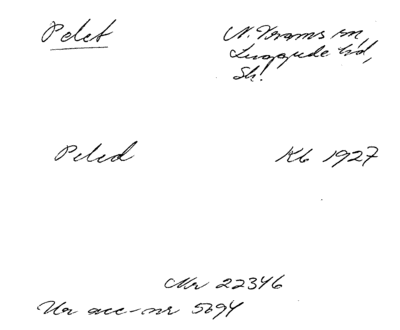 Pelet
N. Vrams sn,
Luggude hd,
Sk!
Peled
Kb 1927
Nr 22346
Ur acc-nr 5694